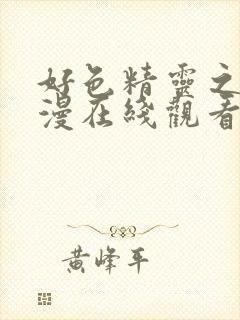 好色精靈之
漫在綫觀看
黃峰平